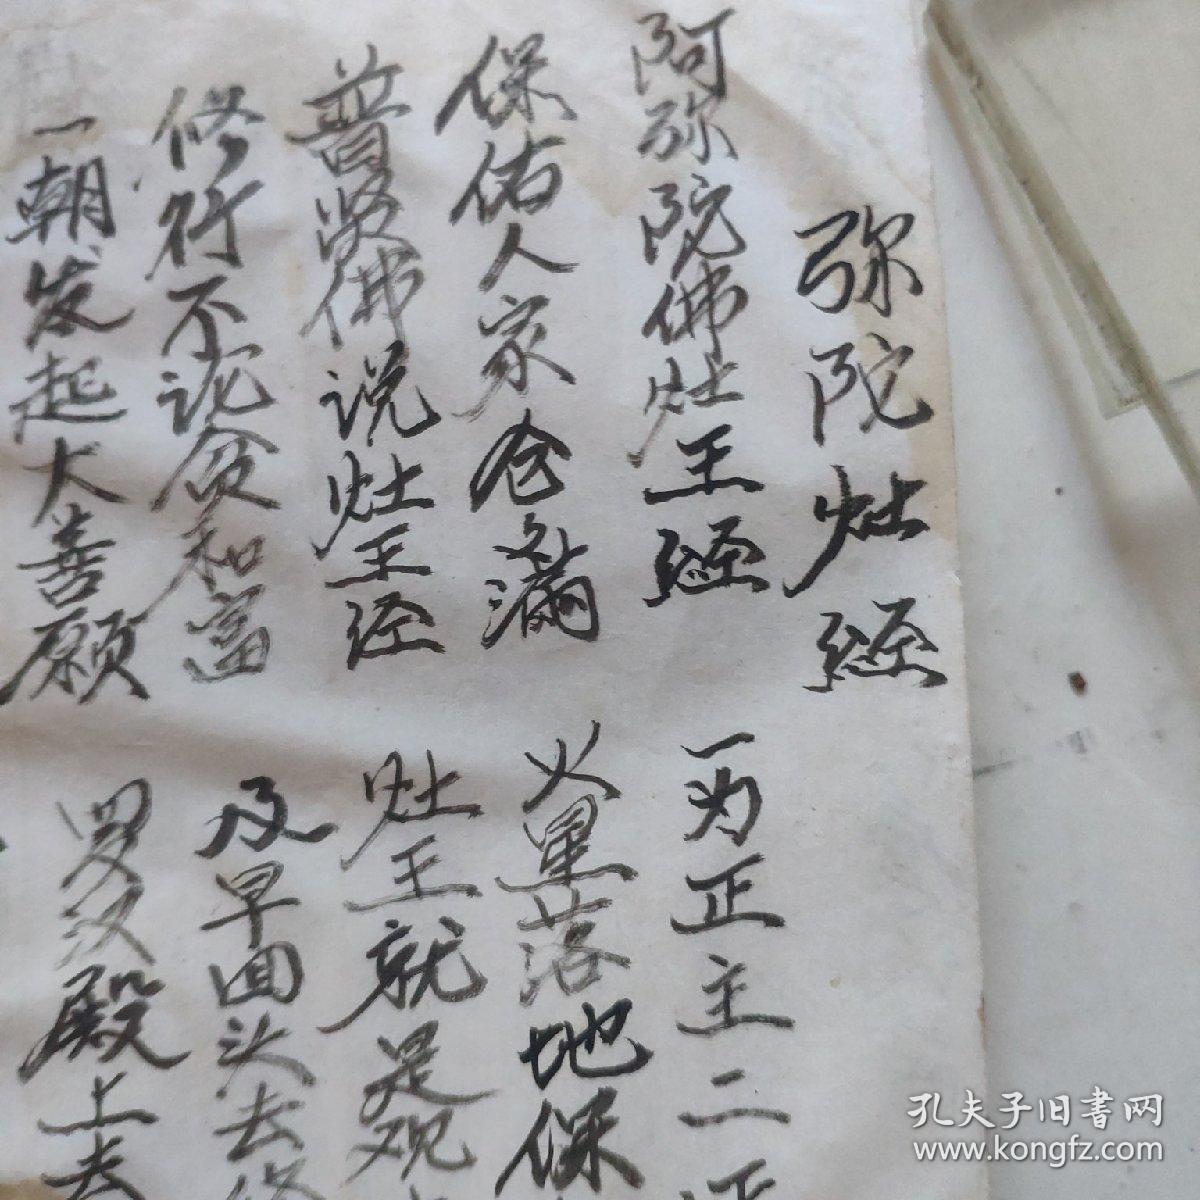 弥陀灶经
阿弥陀佛灶王经
一为正主二
保佑人家仓仓满
火星落地保
普贤佛说灶王经
灶王就是观
修行不论贫和富
及早回头去修
一朝发起大善愿
罗汉殿上去
孔夫子旧書网
www.kongfz.com